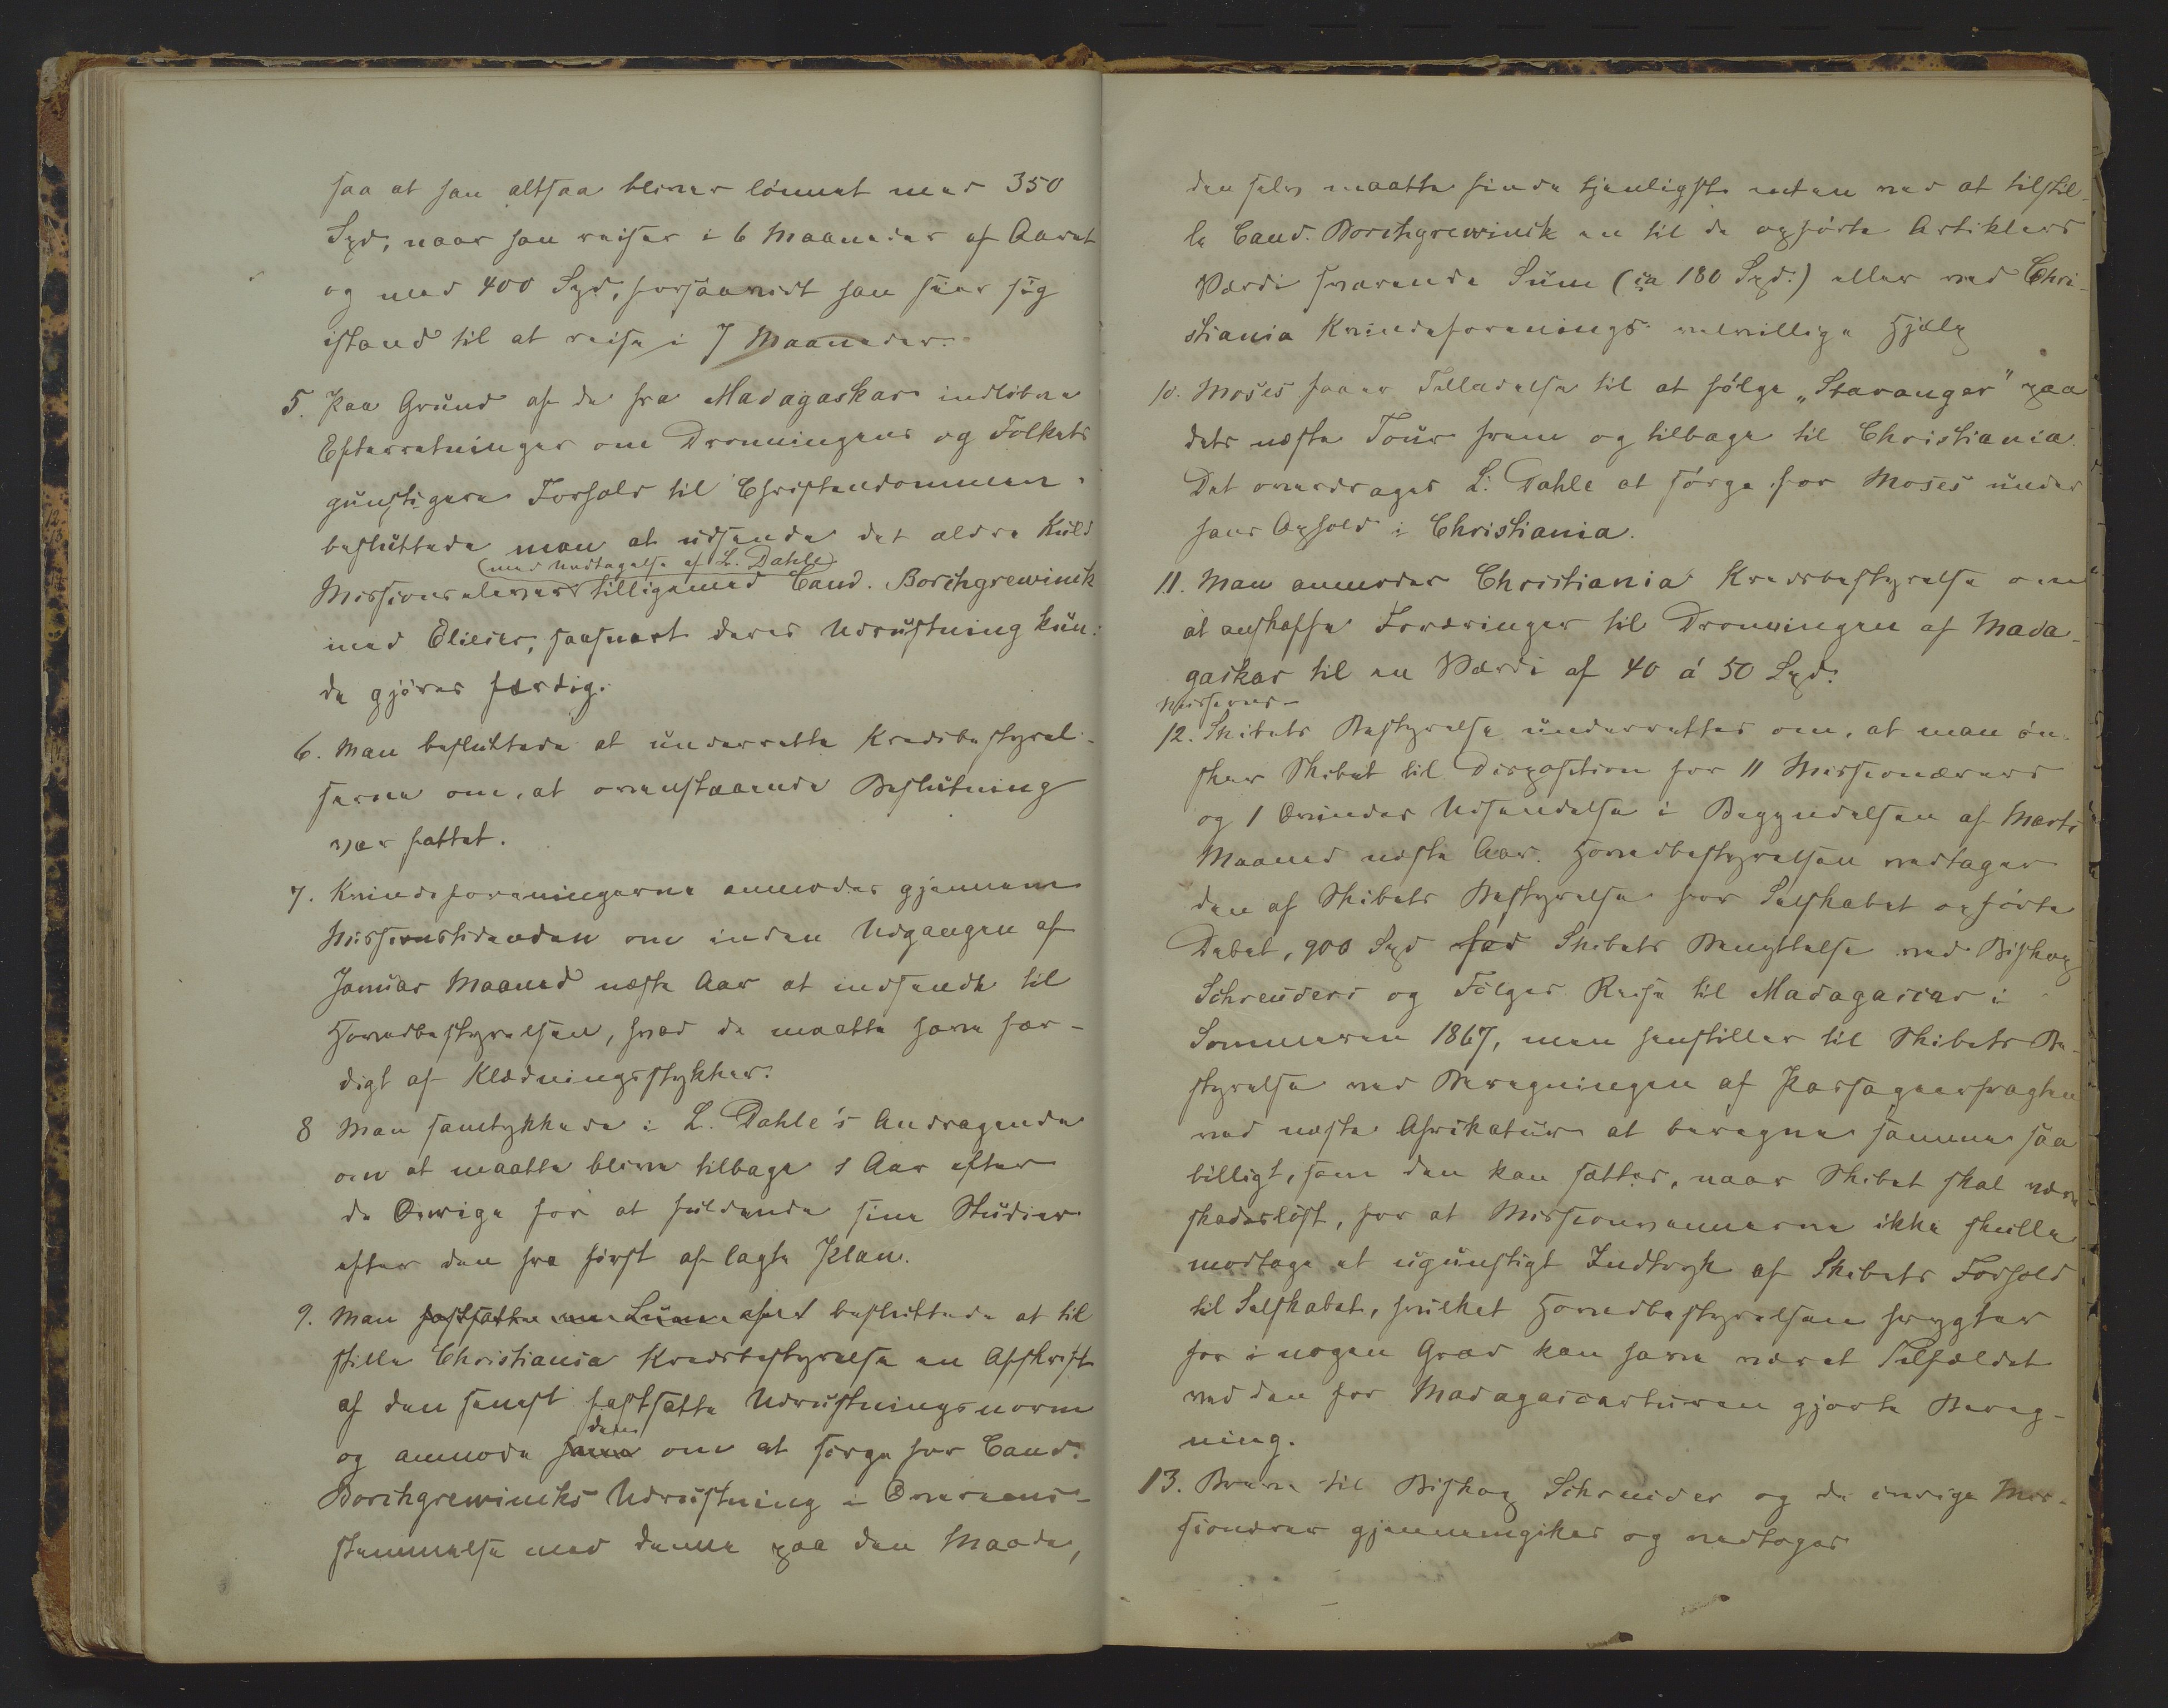 saa at han altsaa bliver lönnet med 350
Spd, naar han reiser i 6 Maaneder af Aaret
og med 400 Spd, forsaavidt han seer sig
istand til at reise i 7 Maaneder.
5. Paa Grund af de fra Madagaskar indlöbne
Efterretninger om Dronningens og Folkets
gunstigere Forhold til Christendommen,
besluttede man at udsende det ældre Kuld
(med Undtagelse af L. Dahle)
Missionselever tilligemed Cand. Borchgrewinck
med Elieser, saasnart deres Udrustning kun-
de gjöres færdig.
6. Man besluttede at underrette Kredsbestyrel-
serne om, at ovenstaaende Beslutning
var fattet.
7. Kvindeforeningerne anmodes gjennem
Missionstidenden om inden Udgangen af
Januar Maaned næste Aar at indsende til
Hovedbestyrelsen, hvad de maatte have fær-
digt af Klædningsstykker.
8 Man samtykkede i L. Dahle's Andragende
om at maatte blive tilbage 1 Aar efter
de Övrige for at fuldende sine Studier
efter den fra först af lagte Plan.
9. Man fastsatte en Sum besluttede at til
stille Christiania Kredsbestyrelse en Afskrift
af den senest fastsatte Udrustningsnorm
denne
og anmode om at sörge for Cand.
Borchgrewincks Udrustning i Overens-
stemmelse med denne paa den Maade,
den selv maatte finde tjenligst enten ved at tilstil-
le Cand. Borchgrewinck en til de opförte Artiklers
Værdi svarende Sum (ca 180 Spd.) eller ved Chri-
stiania Kvindeforenings velvillige Hjælp
10. Moses faaer Tilladelse til at fölge "Stavanger" paa
dets næste Tour frem og tilbage til Christiania.
Det overdrages L. Dahle at sörge for Moses under
hans Ophold i Christiania.
11. Man anmoder Christiania Kredsbestyrelse om
at anskaffe Foræringer til Dronningen af Mada-
gaskar til en Værdi af 40 á 50 Spd.
Missions-
12. Skibets Bestyrelse underrettes om, at man ön-
sker Skibet til Disposition for 11 Missionærers
og 1 Qvindes Udsendelse i Begyndelsen af Marts
Maaned næste Aar. Hovedbestyrelsen vedtager
den af Skibets Bestyrelse for Selskabet opförte
Debet, 900 Spd for Skibets Benyttelse ved Biskop
Schreuders og Fölges Reise til Madagascar i
Sommeren 1867, men henstiller til Skibets Be-
styrelse ved Beregningen af Passagerfragten
ved næste Afrikatur at beregne samme saa
billigt, som den kan sættes, naar Skibet skal være
skadeslöst, for at Missionsvennerne ikke skulle
modtage et ugunstigt Indtryk af Skibets Forhold
til Selskabet, hvilket Hovedbestyrelsen frygter
for i nogen Grad kan have været Tilfældet
ved den for Madagascarturen gjorte Bereg-
ning.
13. Breve til Biskop Schreuder og de övrige Mis-
sionærer gjennemgikes og vedtoges